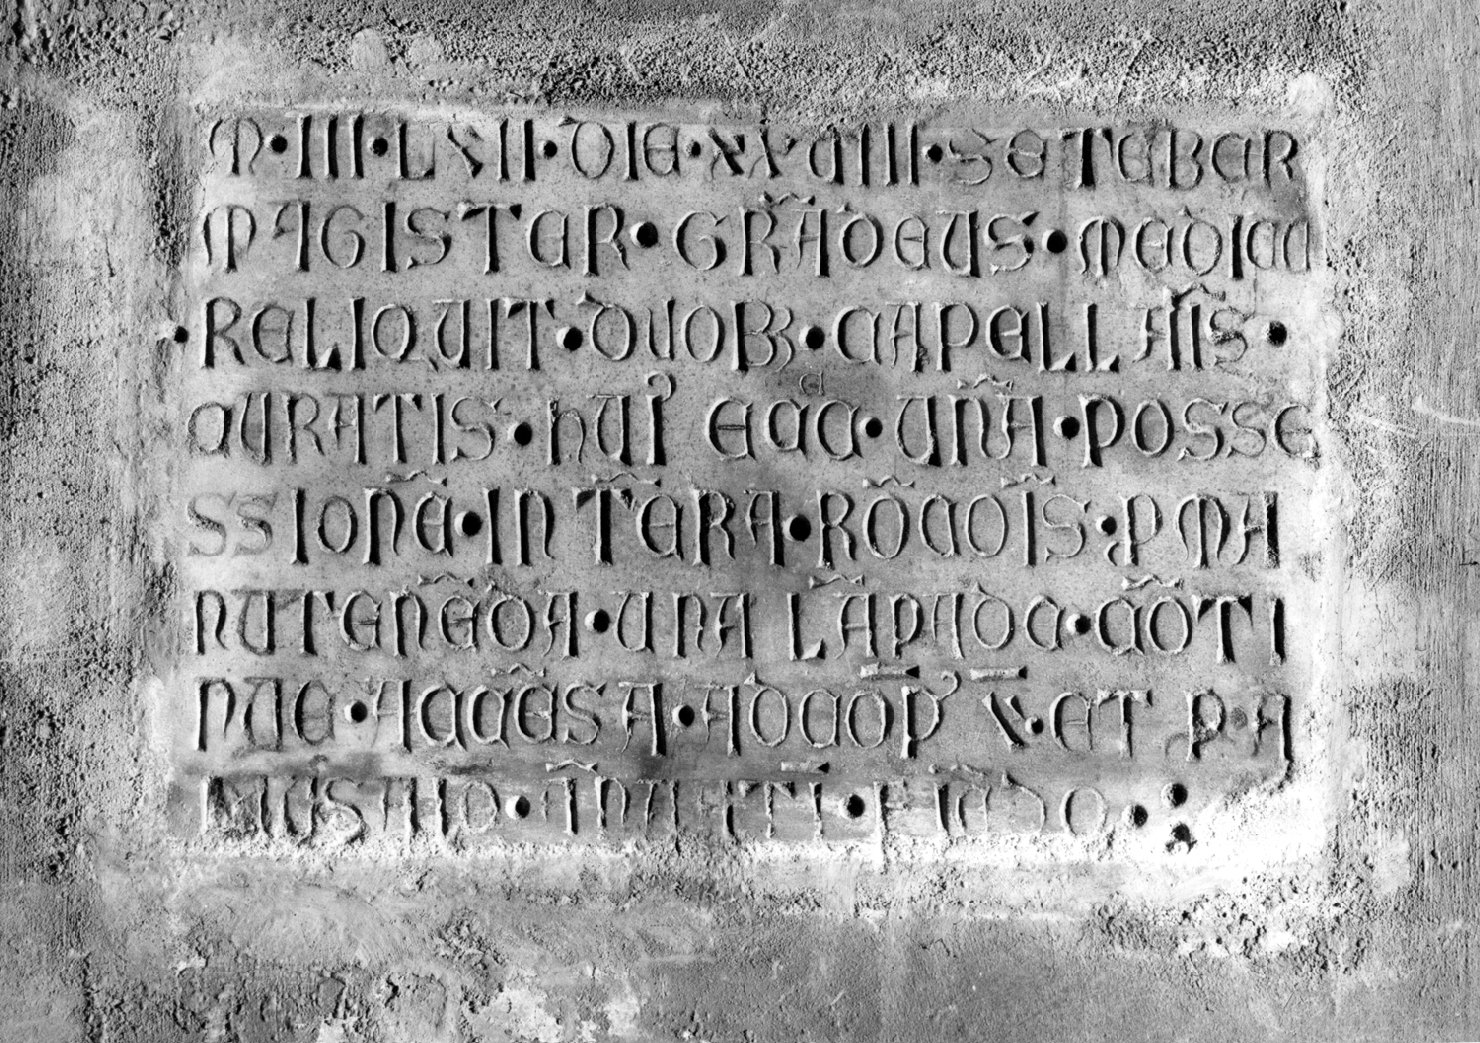 M · III · LXII · DIE · XXVIIII · SETEBER
MAGISTER · GRADEUS · MEDICU
· RELIQUIT · DUOB; · CAPELLĀIS ·
CURATIS · HUI⁹ ECC · UNĀ · POSSE
SSIONĒ · IN TĒRA · RŌCOĪS · PMA
NUTENĒDA · UNA LĀPADA · CŌTI
NUE · ACCĒSA · ADCOP⁹ X̄ · ET PA
MUSIID · ĀNIUTĒ · FIADO ·: